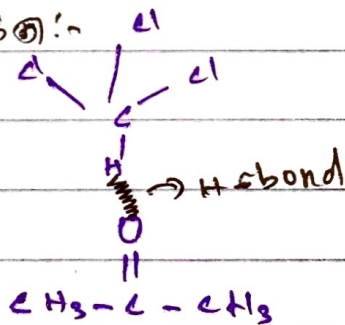 :-
Cl
Cl Cl
C
H
→ H-bond
O
CH3-C-CH3